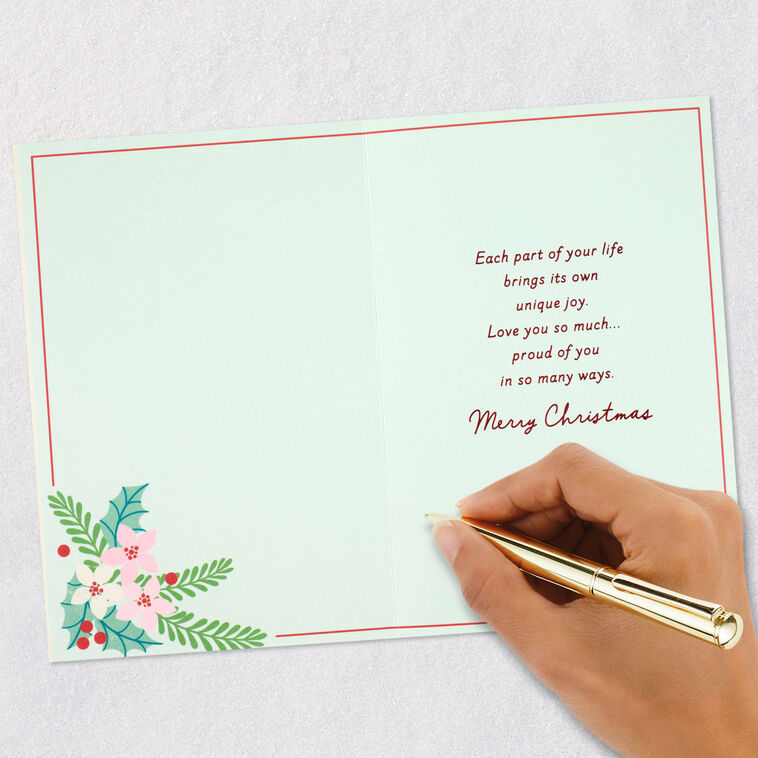 Each part of your life
brings its own
unique joy.
Love you so much...
proud of you
in so many ways.
Merry Christmas